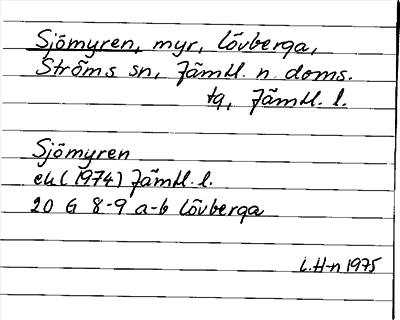 Sjömyren, myr, Lövberga,
Ströms sn, Jämtl. n. doms.
tg, Jämtl. l.
Sjömyren
ek (1974) Jämtl. l.
20 G 8-9 a-b Lövberga
L.H-n 1975